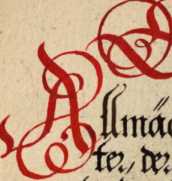 Allmäc
ter, der